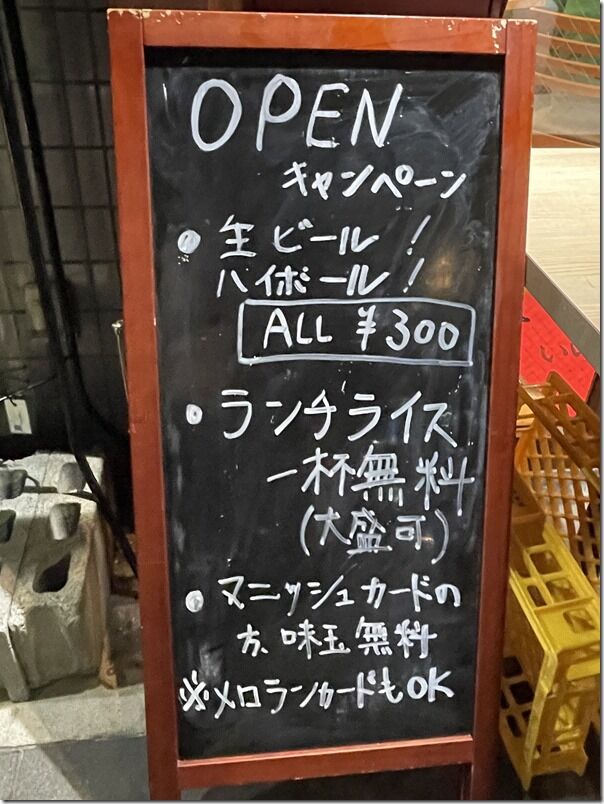 OPEN
キャンペーン
● 生ビール!
ハイボール!
ALL ¥300
● ランチライス
一杯無料
(大盛可)
● マニッシュカードの
方、味玉無料
※メロランカードもOK